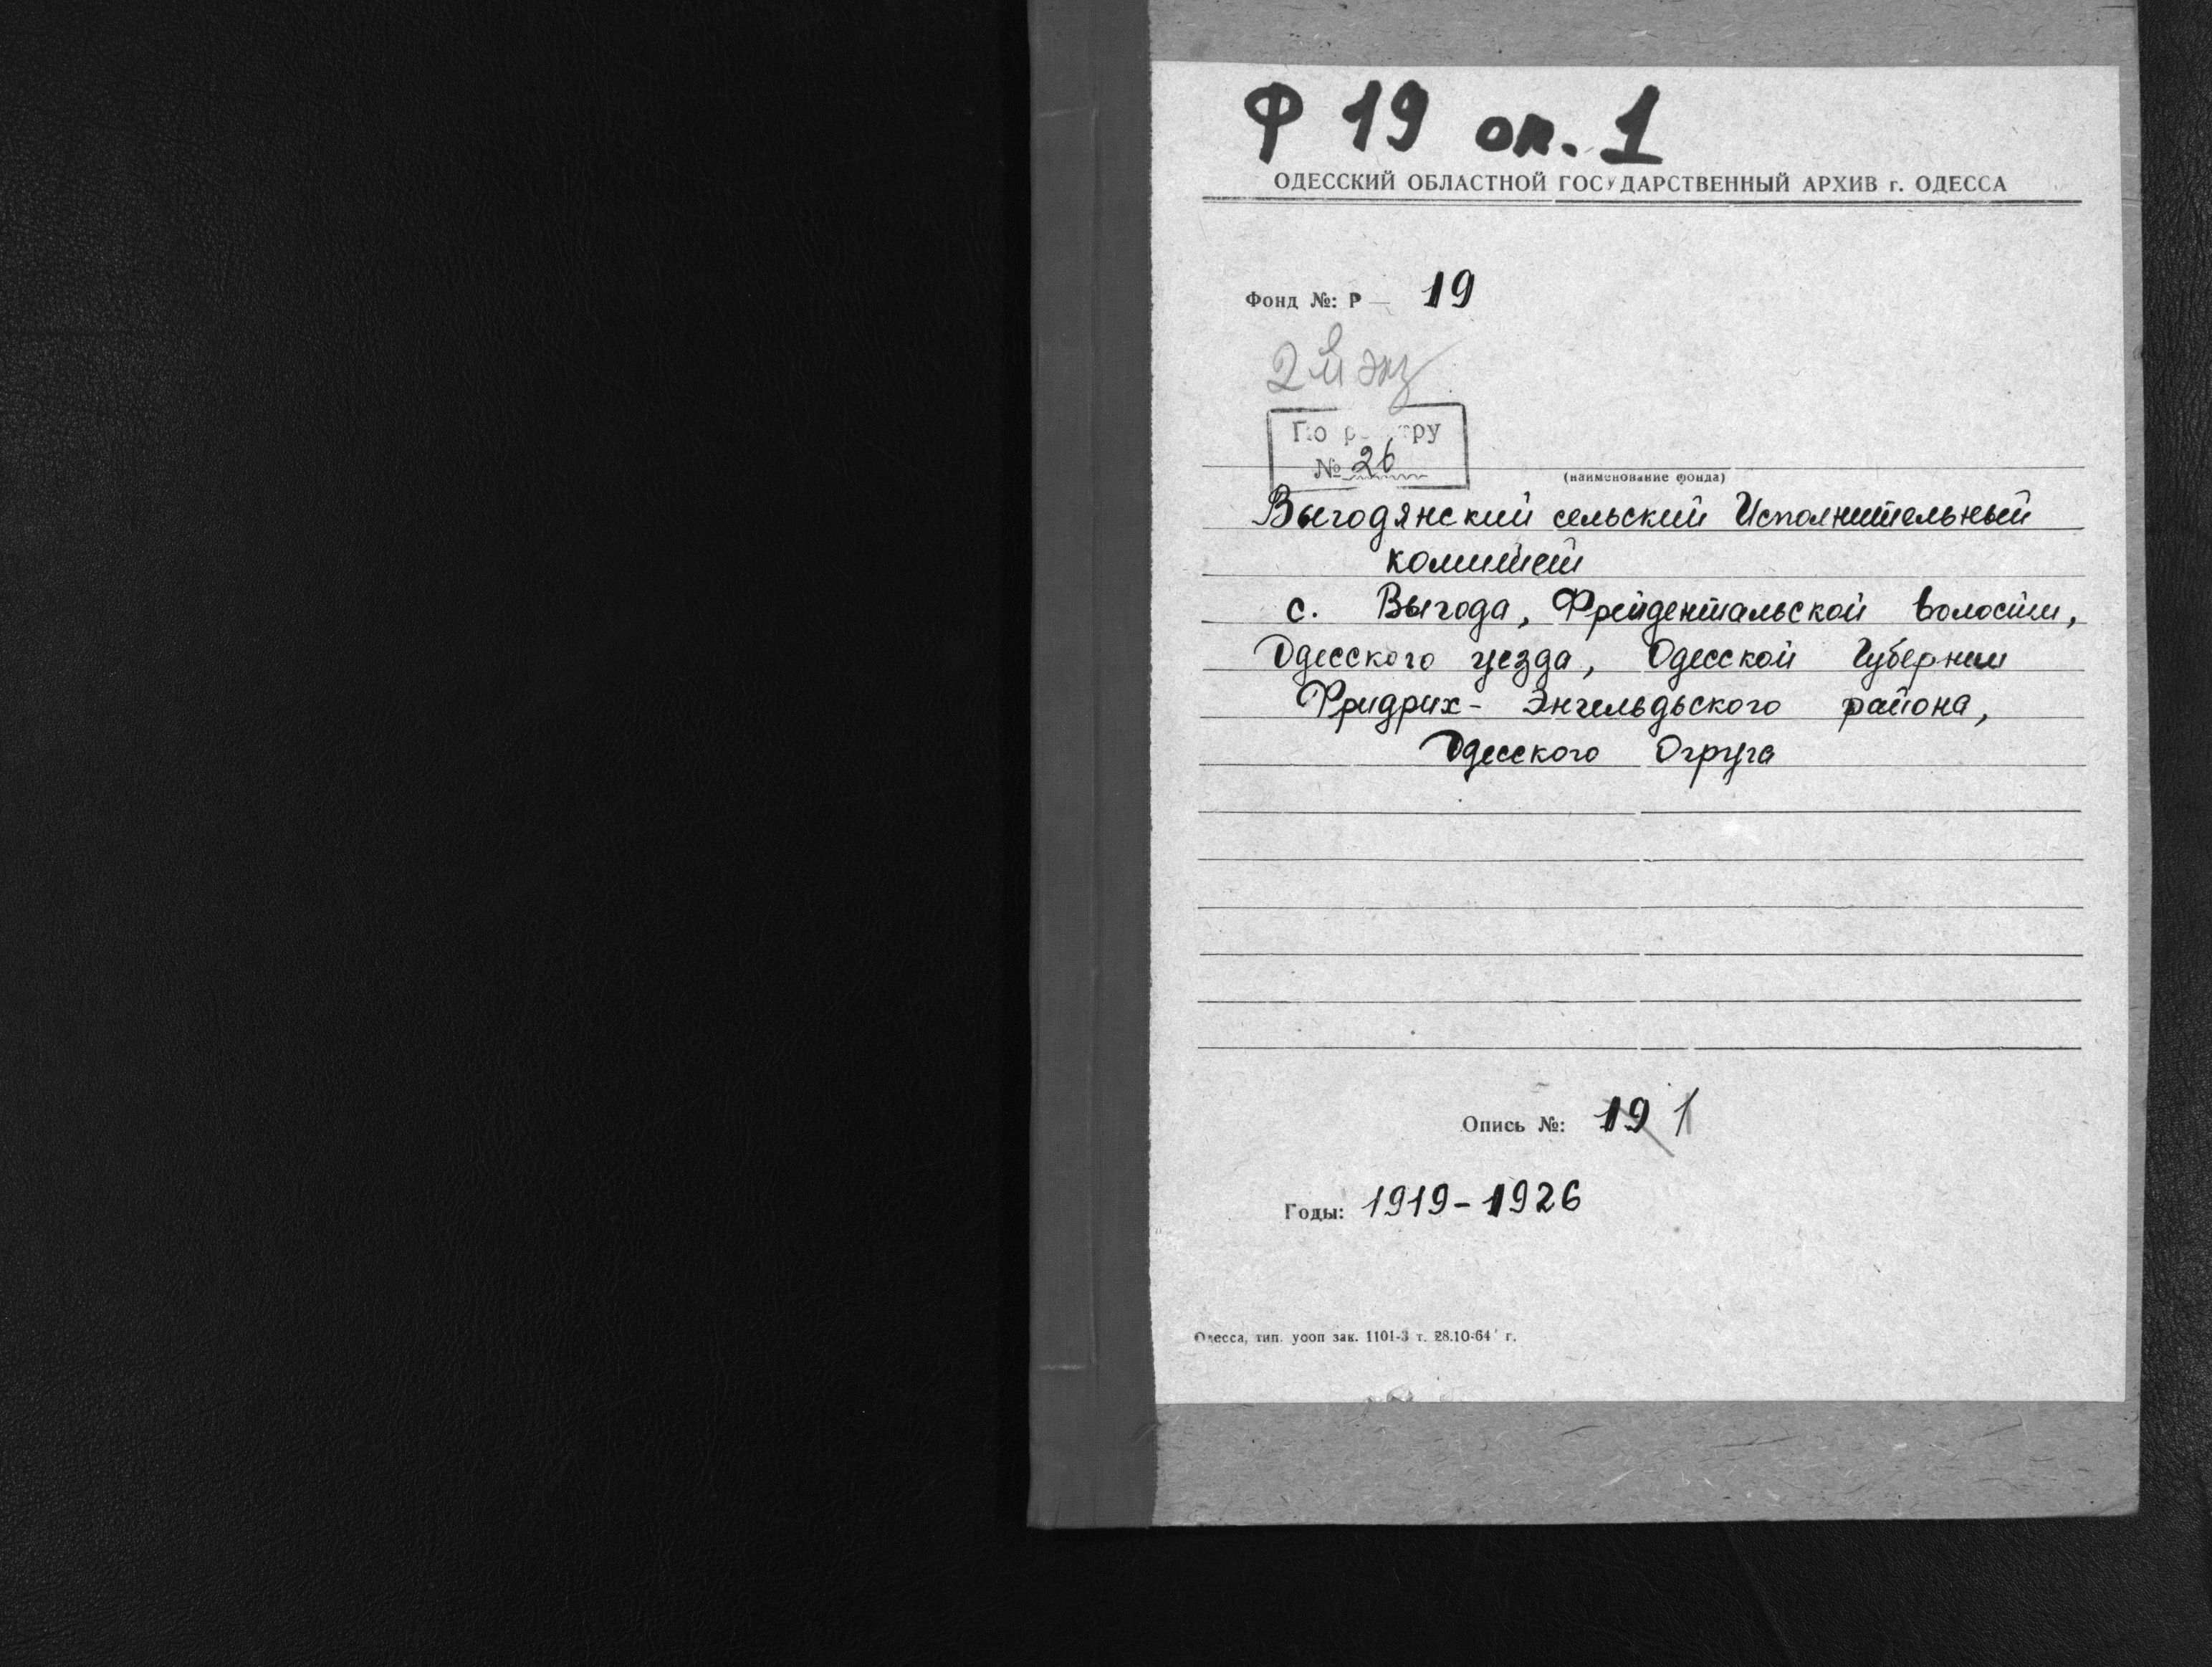 Ф 19 оп. 1
ОДЕССКИЙ ОБЛАСТНОЙ ГОСУДАРСТВЕННЫЙ АРХИВ г. ОДЕССА
Фонд №: Р — 19
2й экз
По
№ 26
(наименование фонда)
Выгодянский сельский Исполнительный
комитет
с. Выгода, Фрейдентальской волости,
Одесского уезда, Одесской Губернии
Фридрих- Энгельдьского района,
Одесского Округа
Опись №: 19 1
Годы: 1919-1926
Одесса, тип. уооп зак. 1101-3 т. 28.10-64 г.